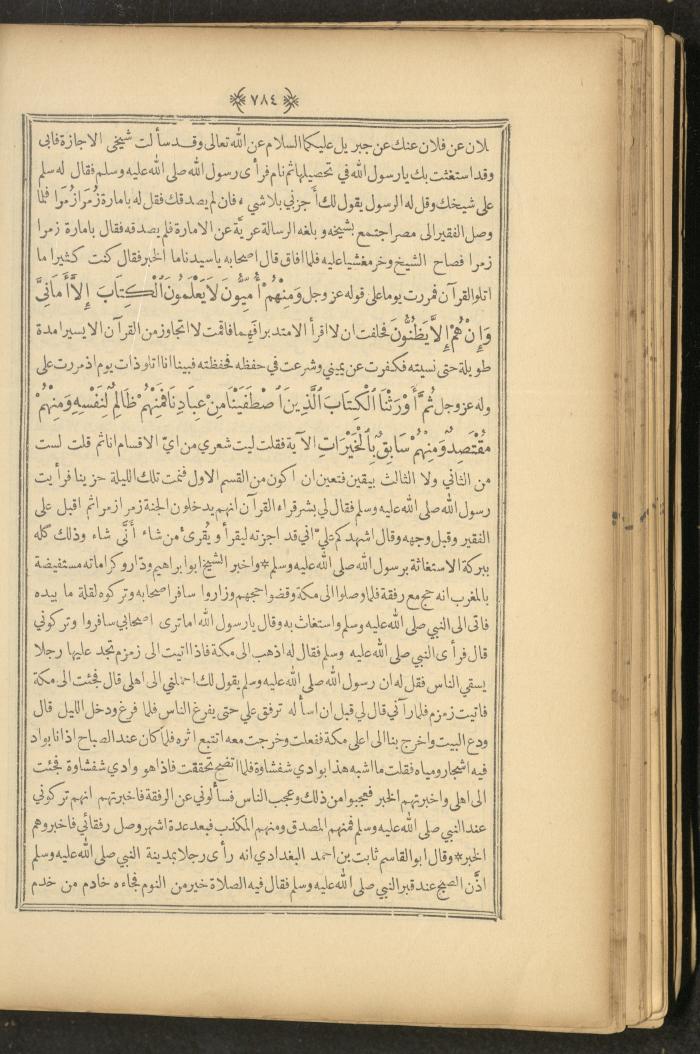 ٧٨٤
لان عن فلان عنك عن جبريل عليكما السلام عن الله تعالى وقد سألت شيخي الاجازة فابى
وقد استغثت بك يا رسول الله في تحصيلها ثم نام فرأى رسول الله صلى الله عليه وسلم فقال له سلم
على شيخك وقل له الرسول يقول لك أجزني بلا شيء فان لم يصدقك فقل له بامارة زُمَرا زُمَرا فلما
وصل الفقير الى مصر اجتمع بشيخه وبلغه الرسالة عريّة عن الامارة فلم يصدقه فقال بامارة زمرا
زمرا فصاح الشيخ وخر مغشيا عليه فلما افاق قال اصحابه يا سيدنا ما الخبر فقال كنت كثيرا ما
اتلو القرآن فمررت يوما على قوله عز وجل وَمِنْهُمْ أُمِّيُّونَ لَا يَعْلَمُونَ ٱلْكِتَابَ إِلَّا أَمَانِيَّ
وَإِنْ هُمْ إِلَّا يَظُنُّونَ فحلفت ان لا اقرأ الا متدبرا فهما فاقمت لا اتجاوز من القرآن الا يسيرا مدة
طويلة حتى نسيته فكفرت عن يميني وشرعت في حفظه فحفظته فبينا انا اتلو ذات يوم اذ مررت على
وله عز وجل ثُمَّ أَوْرَثْنَا ٱلْكِتَابَ ٱلَّذِينَ ٱصْطَفَيْنَا مِنْ عِبَادِنَا فَمِنْهُمْ ظَالِمٌ لِنَفْسِهِ وَمِنْهُمْ
مُقْتَصِدٌ وَمِنْهُمْ سَابِقٌ بِٱلْخَيْرَاتِ الآية فقلت ليت شعري من ايّ الاقسام انا ثم قلت لست
من الثاني ولا الثالث بيقين فتعين ان اكون من القسم الاول فنمت تلك الليلة حزينا فرأيت
رسول الله صلى الله عليه وسلم فقال لي بشر قراء القرآن انهم يدخلون الجنة زمرا زمرا ثم اقبل على
الفقير وقبل وجهه وقال اشهدكم عليّ اني قد اجزته ليقرأ ويُقرئ من شاء أَنَّى شاء وذلك كله
ببركة الاستغاثة برسول الله صلى الله عليه وسلم * واخبر الشيخ ابو ابراهيم ودّار وكراماته مستفيضة
بالمغرب انه حج مع رفقة فلما وصلوا الى مكة وقضوا حجهم وزاروا سافر اصحابه وتركوه لقلة ما بيده
فاتى الى النبي صلى الله عليه وسلم واستغاث به وقال يا رسول الله اما ترى اصحابي سافروا وتركوني
قال فرأى النبي صلى الله عليه وسلم فقال له اذهب الى مكة فاذا اتيت الى زمزم تجد عليها رجلا
يسقي الناس فقل له ان رسول الله صلى الله عليه وسلم يقول لك احملني الى اهلي قال فجئت الى مكة
فاتيت زمزم فلما رآني قال لي قبل ان اسأله ترفق علي حتى يفرغ الناس فلما فرغ ودخل الليل قال
ودع البيت واخرج بنا الى اعلى مكة ففعلت وخرجت معه اتتبع اثره فلما كان عند الصباح اذا انا بواد
فيه اشجار ومياه فقلت ما اشبه هذا بوادي شفشاوة فلما اتضح تحققت فاذا هو وادي شفشاوة فجئت
الى اهلي واخبرتهم الخبر فعجبوا من ذلك وعجب الناس فسألوني عن الرفقة فاخبرتهم انهم تركوني
عند النبي صلى الله عليه وسلم فمنهم المصدق ومنهم المكذب فبعد عدة اشهر وصل رفقائي فاخبروهم
الخبر * وقال ابو القاسم ثابت بن احمد البغدادي انه رأى رجلا بمدينة النبي صلى الله عليه وسلم
اذّن الصبح عند قبر النبي صلى الله عليه وسلم فقال فيه الصلاة خير من النوم فجاءه خادم من خدم